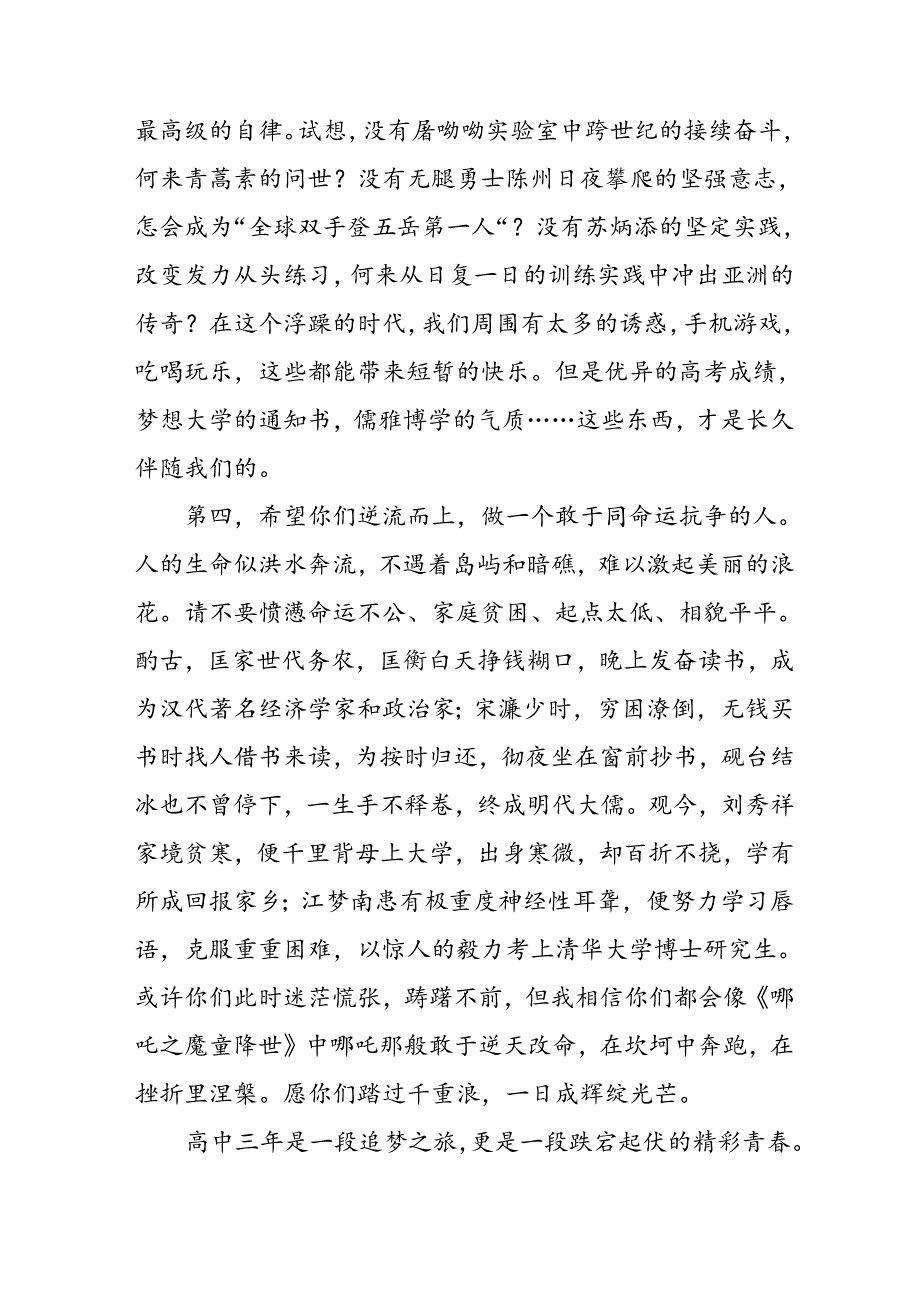 最高级的自律。试想，没有屠呦呦实验室中跨世纪的接续奋斗，
何来青蒿素的问世？没有无腿勇士陈州日夜攀爬的坚强意志，
怎会成为“全球双手登五岳第一人“？没有苏炳添的坚定实践，
改变发力从头练习，何来从日复一日的训练实践中冲出亚洲的
传奇？在这个浮躁的时代，我们周围有太多的诱惑，手机游戏，
吃喝玩乐，这些都能带来短暂的快乐。但是优异的高考成绩，
梦想大学的通知书，儒雅博学的气质……这些东西，才是长久
伴随我们的。
第四，希望你们逆流而上，做一个敢于同命运抗争的人。
人的生命似洪水奔流，不遇着岛屿和暗礁，难以激起美丽的浪
花。请不要愤懑命运不公、家庭贫困、起点太低、相貌平平。
酌古，匡家世代务农，匡衡白天挣钱糊口，晚上发奋读书，成
为汉代著名经济学家和政治家；宋濂少时，穷困潦倒，无钱买
书时找人借书来读，为按时归还，彻夜坐在窗前抄书，砚台结
冰也不曾停下，一生手不释卷，终成明代大儒。观今，刘秀祥
家境贫寒，便千里背母上大学，出身寒微，却百折不挠，学有
所成回报家乡；江梦南患有极重度神经性耳聋，便努力学习唇
语，克服重重困难，以惊人的毅力考上清华大学博士研究生。
或许你们此时迷茫慌张，踌躇不前，但我相信你们都会像《哪
吒之魔童降世》中哪吒那般敢于逆天改命，在坎坷中奔跑，在
挫折里涅槃。愿你们踏过千重浪，一日成辉绽光芒。
高中三年是一段追梦之旅，更是一段跌宕起伏的精彩青春。